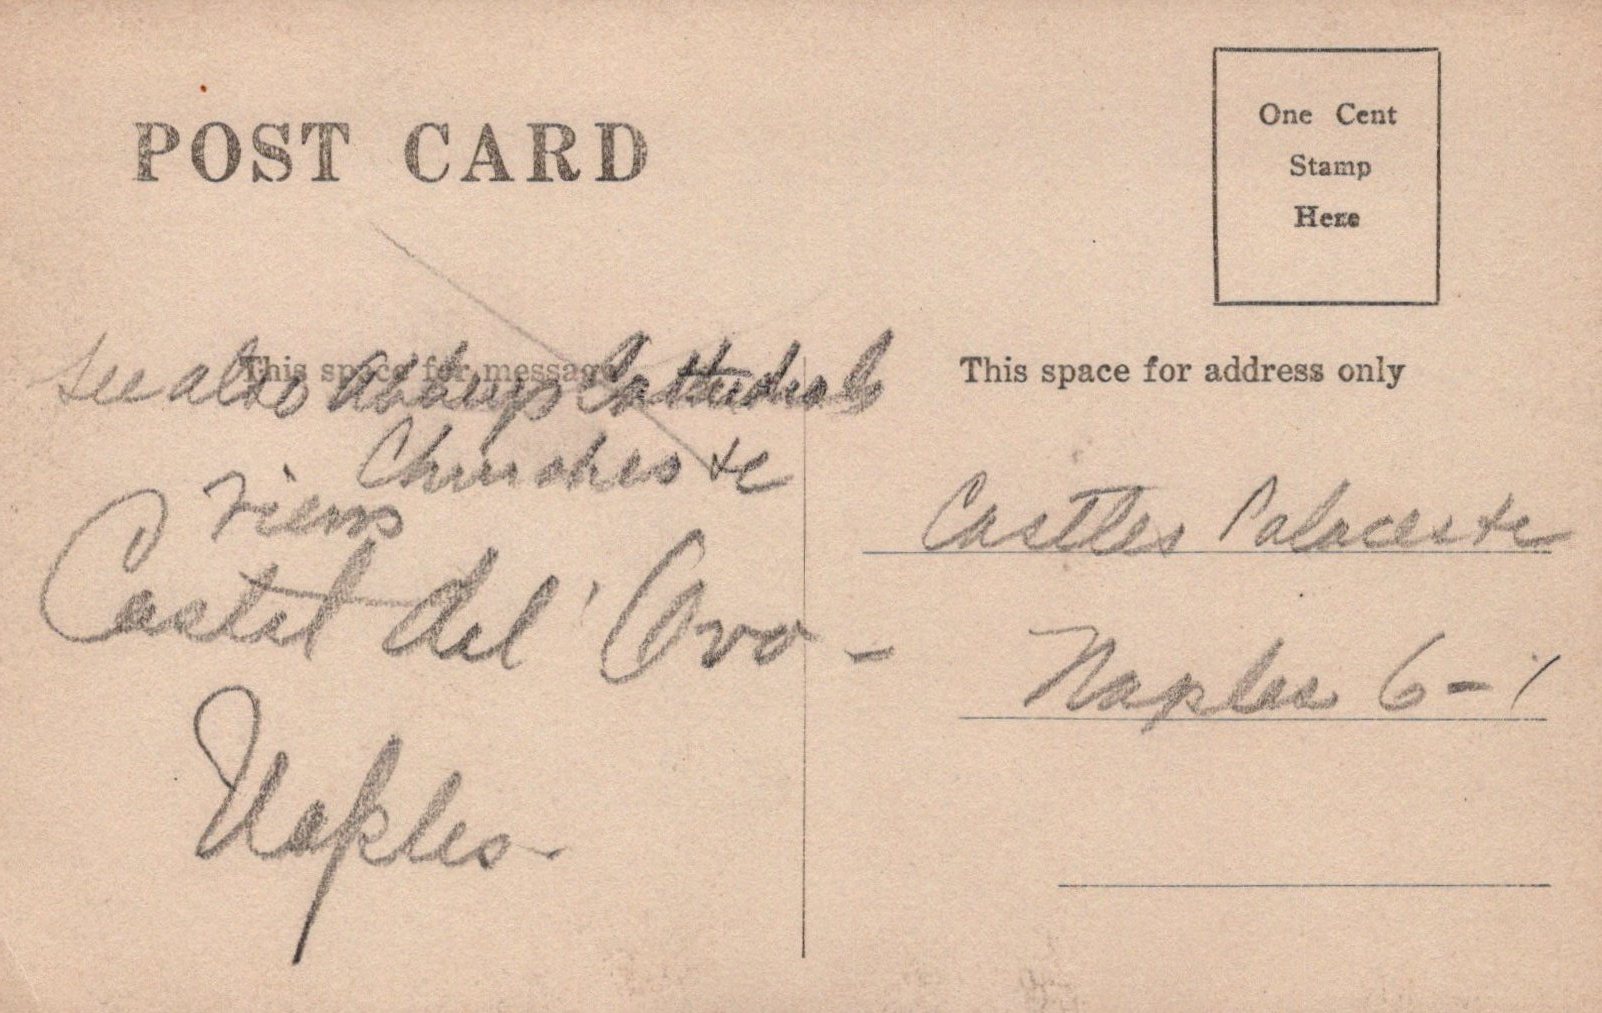 POST CARD
One Cent
Stamp
Here
This space for message
See also Abbeys Cathedrals
Churches &c
Views
Castel del' Ovo -
Naples -
This space for address only
Castles Palaces &c
Naples 6-1